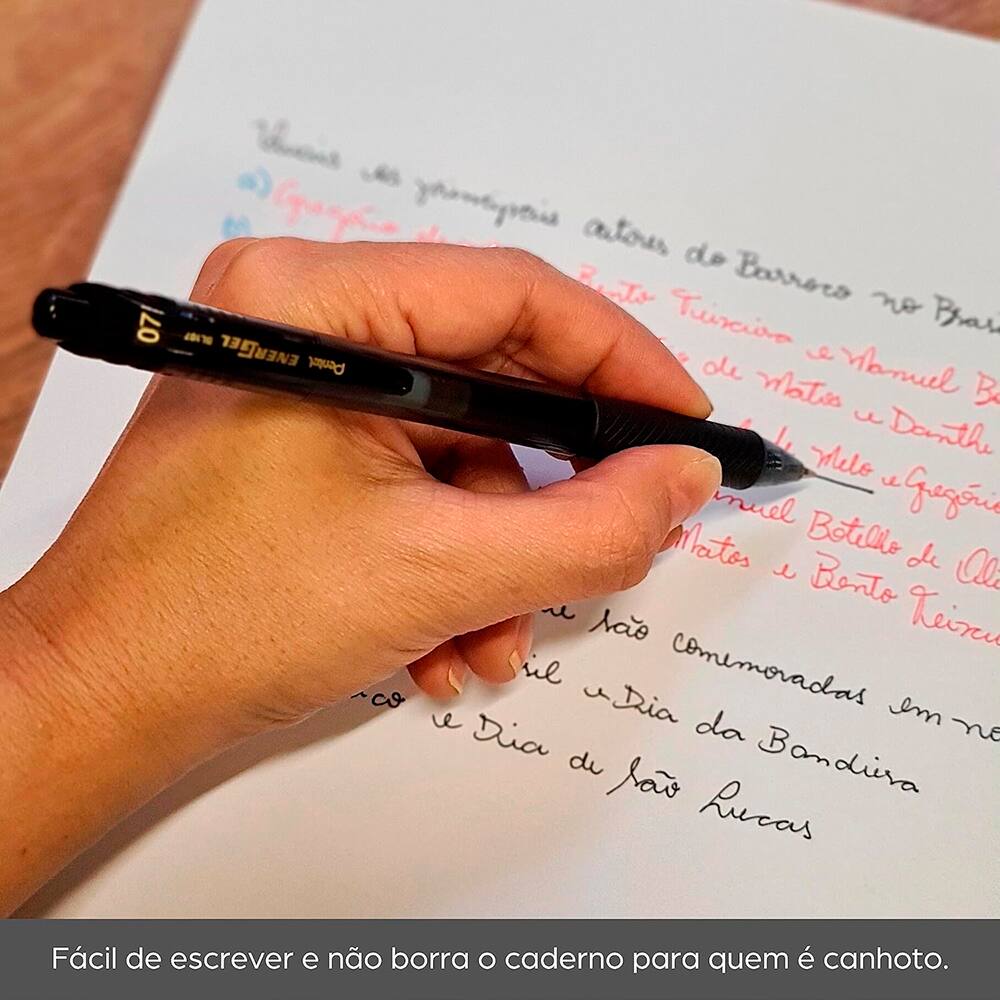 Quais os principais autores do Barroco no Bras
a) Gregório de
b) Bento Teixeira e Manuel B
de Matos e Danthe
de Melo e Gregório
anuel Botelho de Oli
Matos e Bento Teixei
são comemoradas em no
sil e Dia da Bandeira
ico e Dia de São Lucas
07
Pentel ENERGEL BL107
Fácil de escrever e não borra o caderno para quem é canhoto.